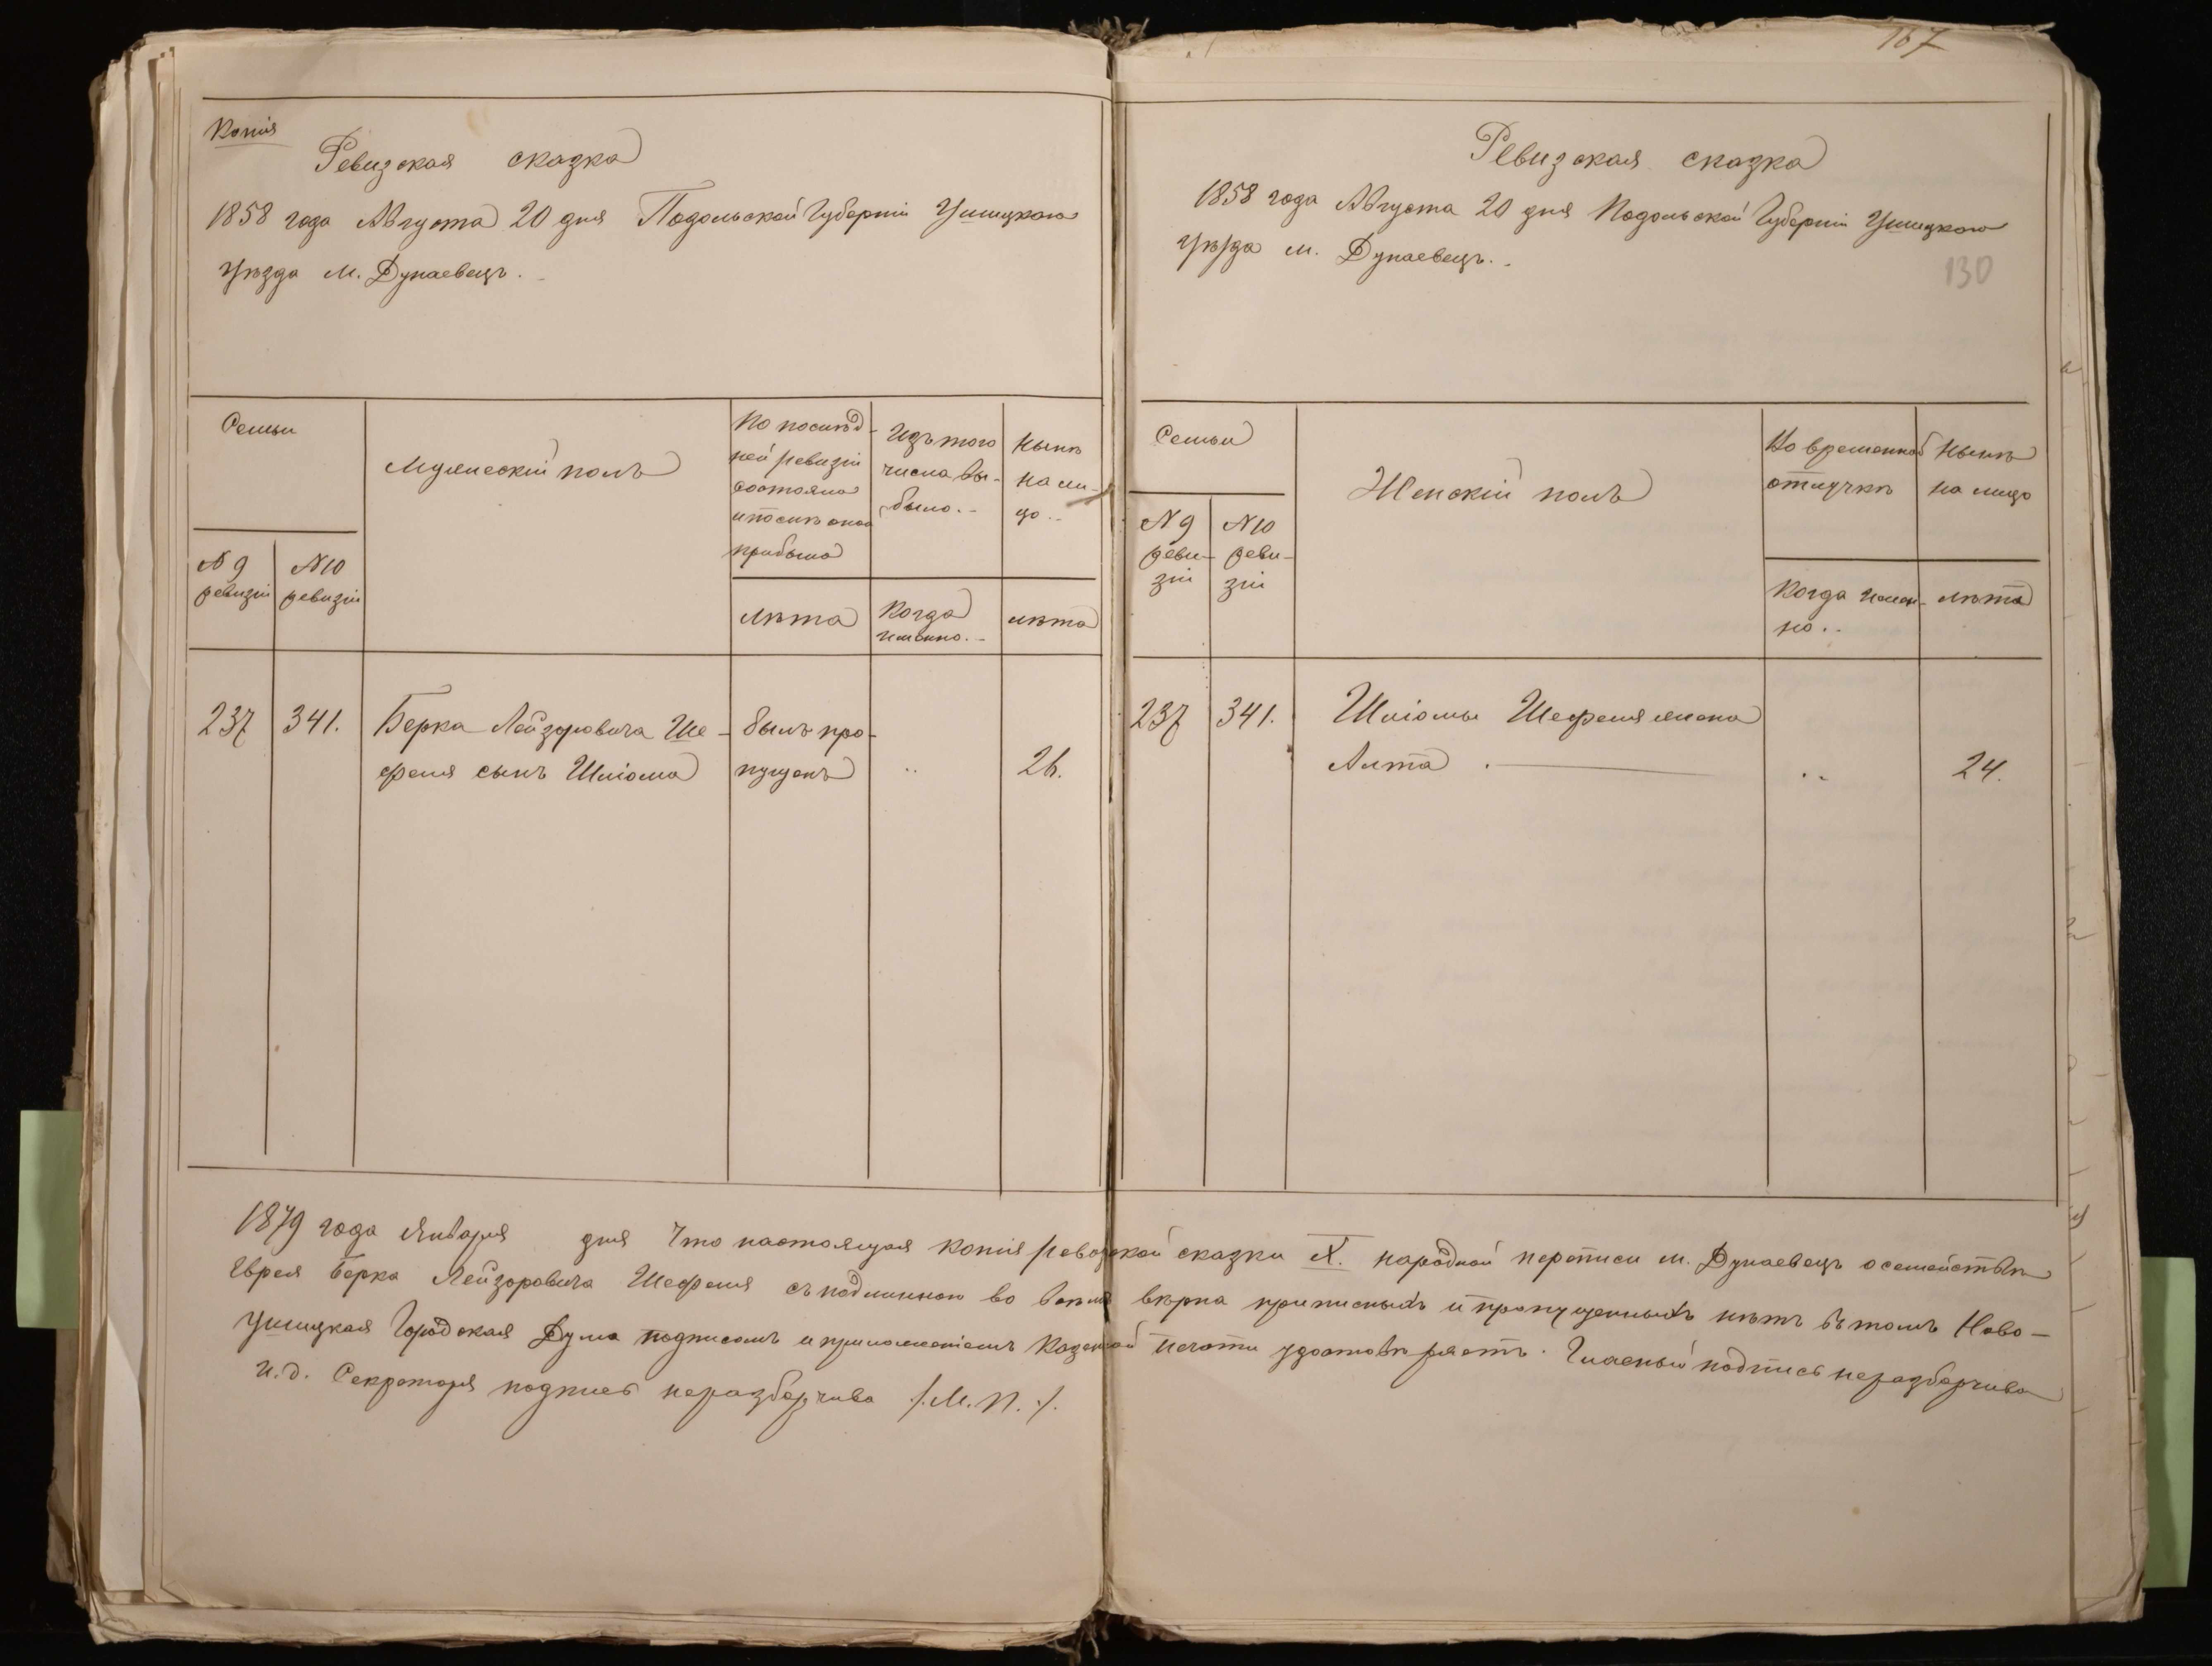 Копія
Ревизская сказка
1858 года Августа 20 дня Подольской Губерніи Ушицкаго
уѣзда м. Дунаевецъ.
Семьи
№ 9 ревизіи
№ 10 ревизіи
Мужескій полъ
По послѣд-
ней ревизіи
состояло
и послѣ оной
прибыло
лѣта
Изъ того
числа вы-
было.
Когда
именно.
Нынѣ
на ли-
цо.
лѣта
237 341. Берка Лейзоровича Ше- былъ про-
феля сынъ Шліома пущенъ 26.
1879 года Января дня Что настоящая копія ревизской сказки X. народной переписи м. Дунаевецъ о семействѣ
Еврея Берка Лейзоровича Шефеля съ подлинною во всемъ вѣрна приписныхъ и пропущенныхъ нѣтъ въ томъ Ново-
Ушицкая Городская Дума подписомъ и приложеніемъ казенной печати удостовѣряетъ. Гласный подпись неразборчива
И.д. Секретаря подпись неразборчива /.М.П./.
167
Ревизская сказка
1858 года Августа 20 дня Подольской Губерніи Ушицкаго
уѣзда м. Дунаевецъ.
130
Семьи
№ 9
реви-
зіи
№ 10
реви-
зіи
Женскій полъ
Во временной
отлучкѣ
Когда имен-
но.
Нынѣ
на лицо
лѣта
237 341. Шліомы Шефеля жена
Алта 24.